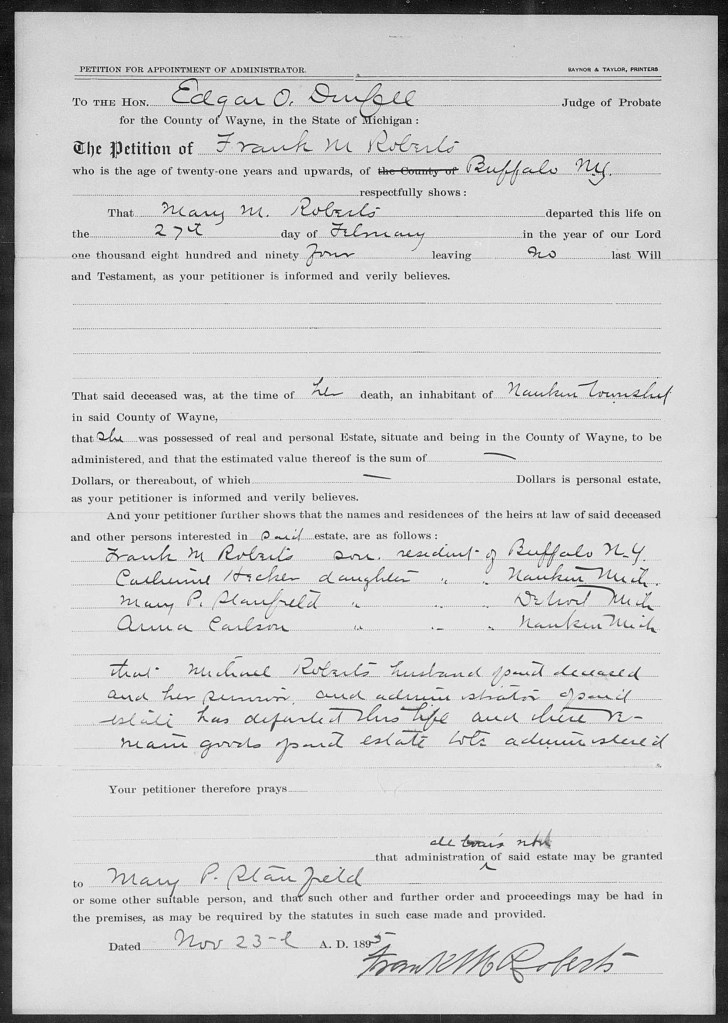 PETITION FOR APPOINTMENT OF ADMINISTRATOR. RAYNOR & TAYLOR, PRINTERS
TO THE HON. Edgar O. Durfee Judge of Probate
for the County of Wayne, in the State of Michigan:
The Petition of Frank M Roberts
who is the age of twenty-one years and upwards, of the County of Buffalo N.Y.
respectfully shows:
That Mary M. Roberts departed this life on
the 27th day of February in the year of our Lord
one thousand eight hundred and ninety four leaving no last Will
and Testament, as your petitioner is informed and verily believes.
That said deceased was, at the time of her death, an inhabitant of Nankin Township
in said County of Wayne,
that she was possessed of real and personal Estate, situate and being in the County of Wayne, to be
administered, and that the estimated value thereof is the sum of —
Dollars, or thereabout, of which — Dollars is personal estate,
as your petitioner is informed and verily believes.
And your petitioner further shows that the names and residences of the heirs at law of said deceased
and other persons interested in said estate, are as follows:
Frank M Roberts son. resident of Buffalo N.Y.
Catherine Hecker daughter " " Nankin Mich.
Mary P. Stanfield " " " Detroit Mich
Anna Carlson " " " Nankin Mich
that Michael Roberts husband of said deceased
and her survivor, and administrator of said
estate has departed this life and there re-
main goods of said estate to be administered
Your petitioner therefore prays
de bonis non
that administration ^ of said estate may be granted
to Mary P. Stanfield
or some other suitable person, and that such other and further order and proceedings may be had in
the premises, as may be required by the statutes in such case made and provided.
Dated Nov 23d A. D. 1895
Frank M Roberts